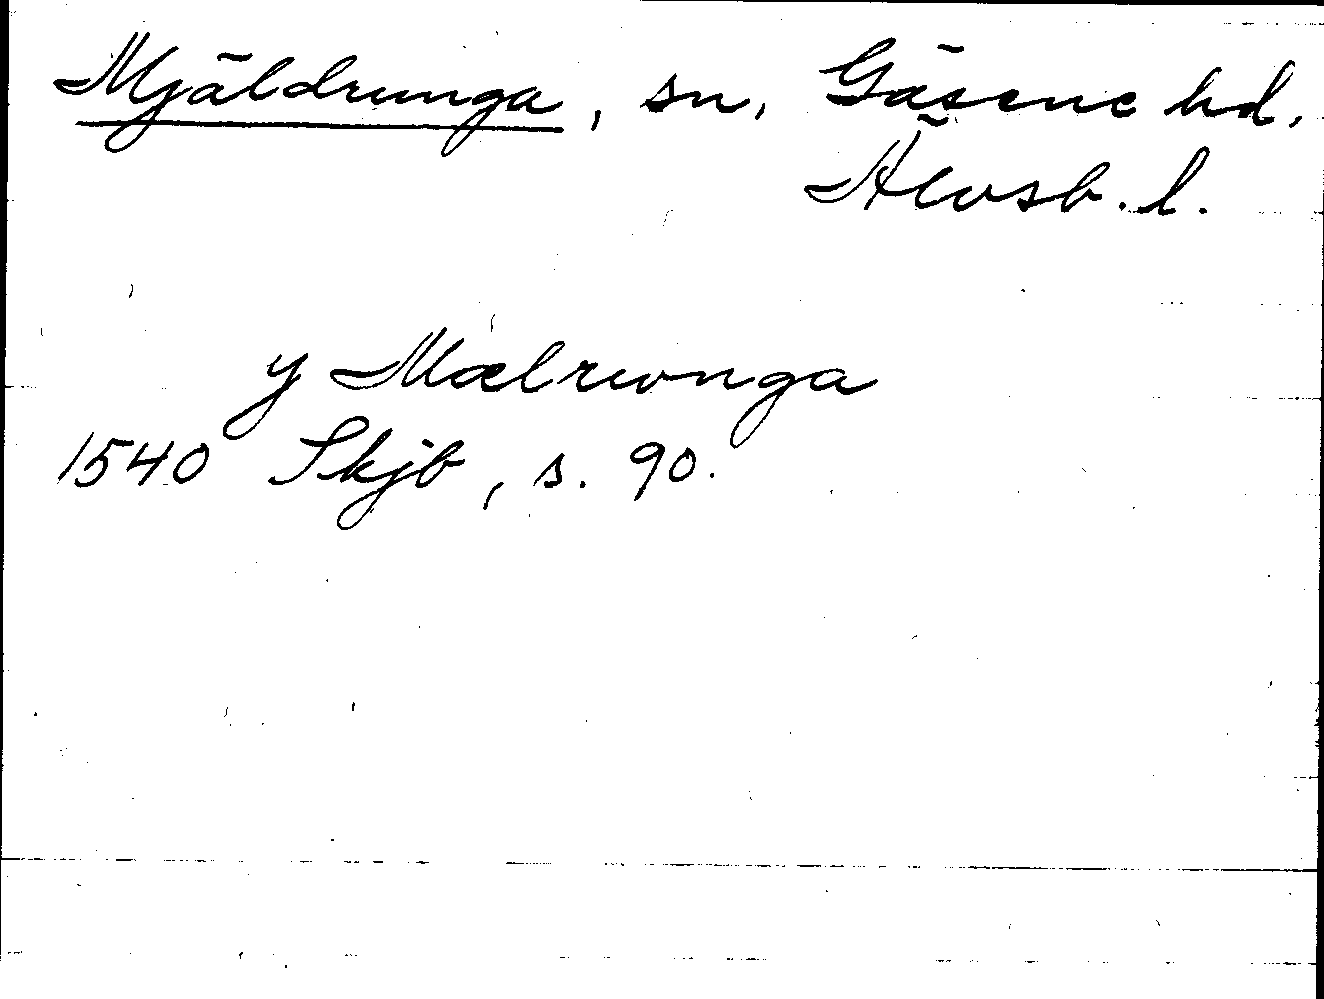 Mjäldrunga, sn, Gäsene hd,
Älvsb. l.
y Mælrunga
1540 Skjb, s. 90.